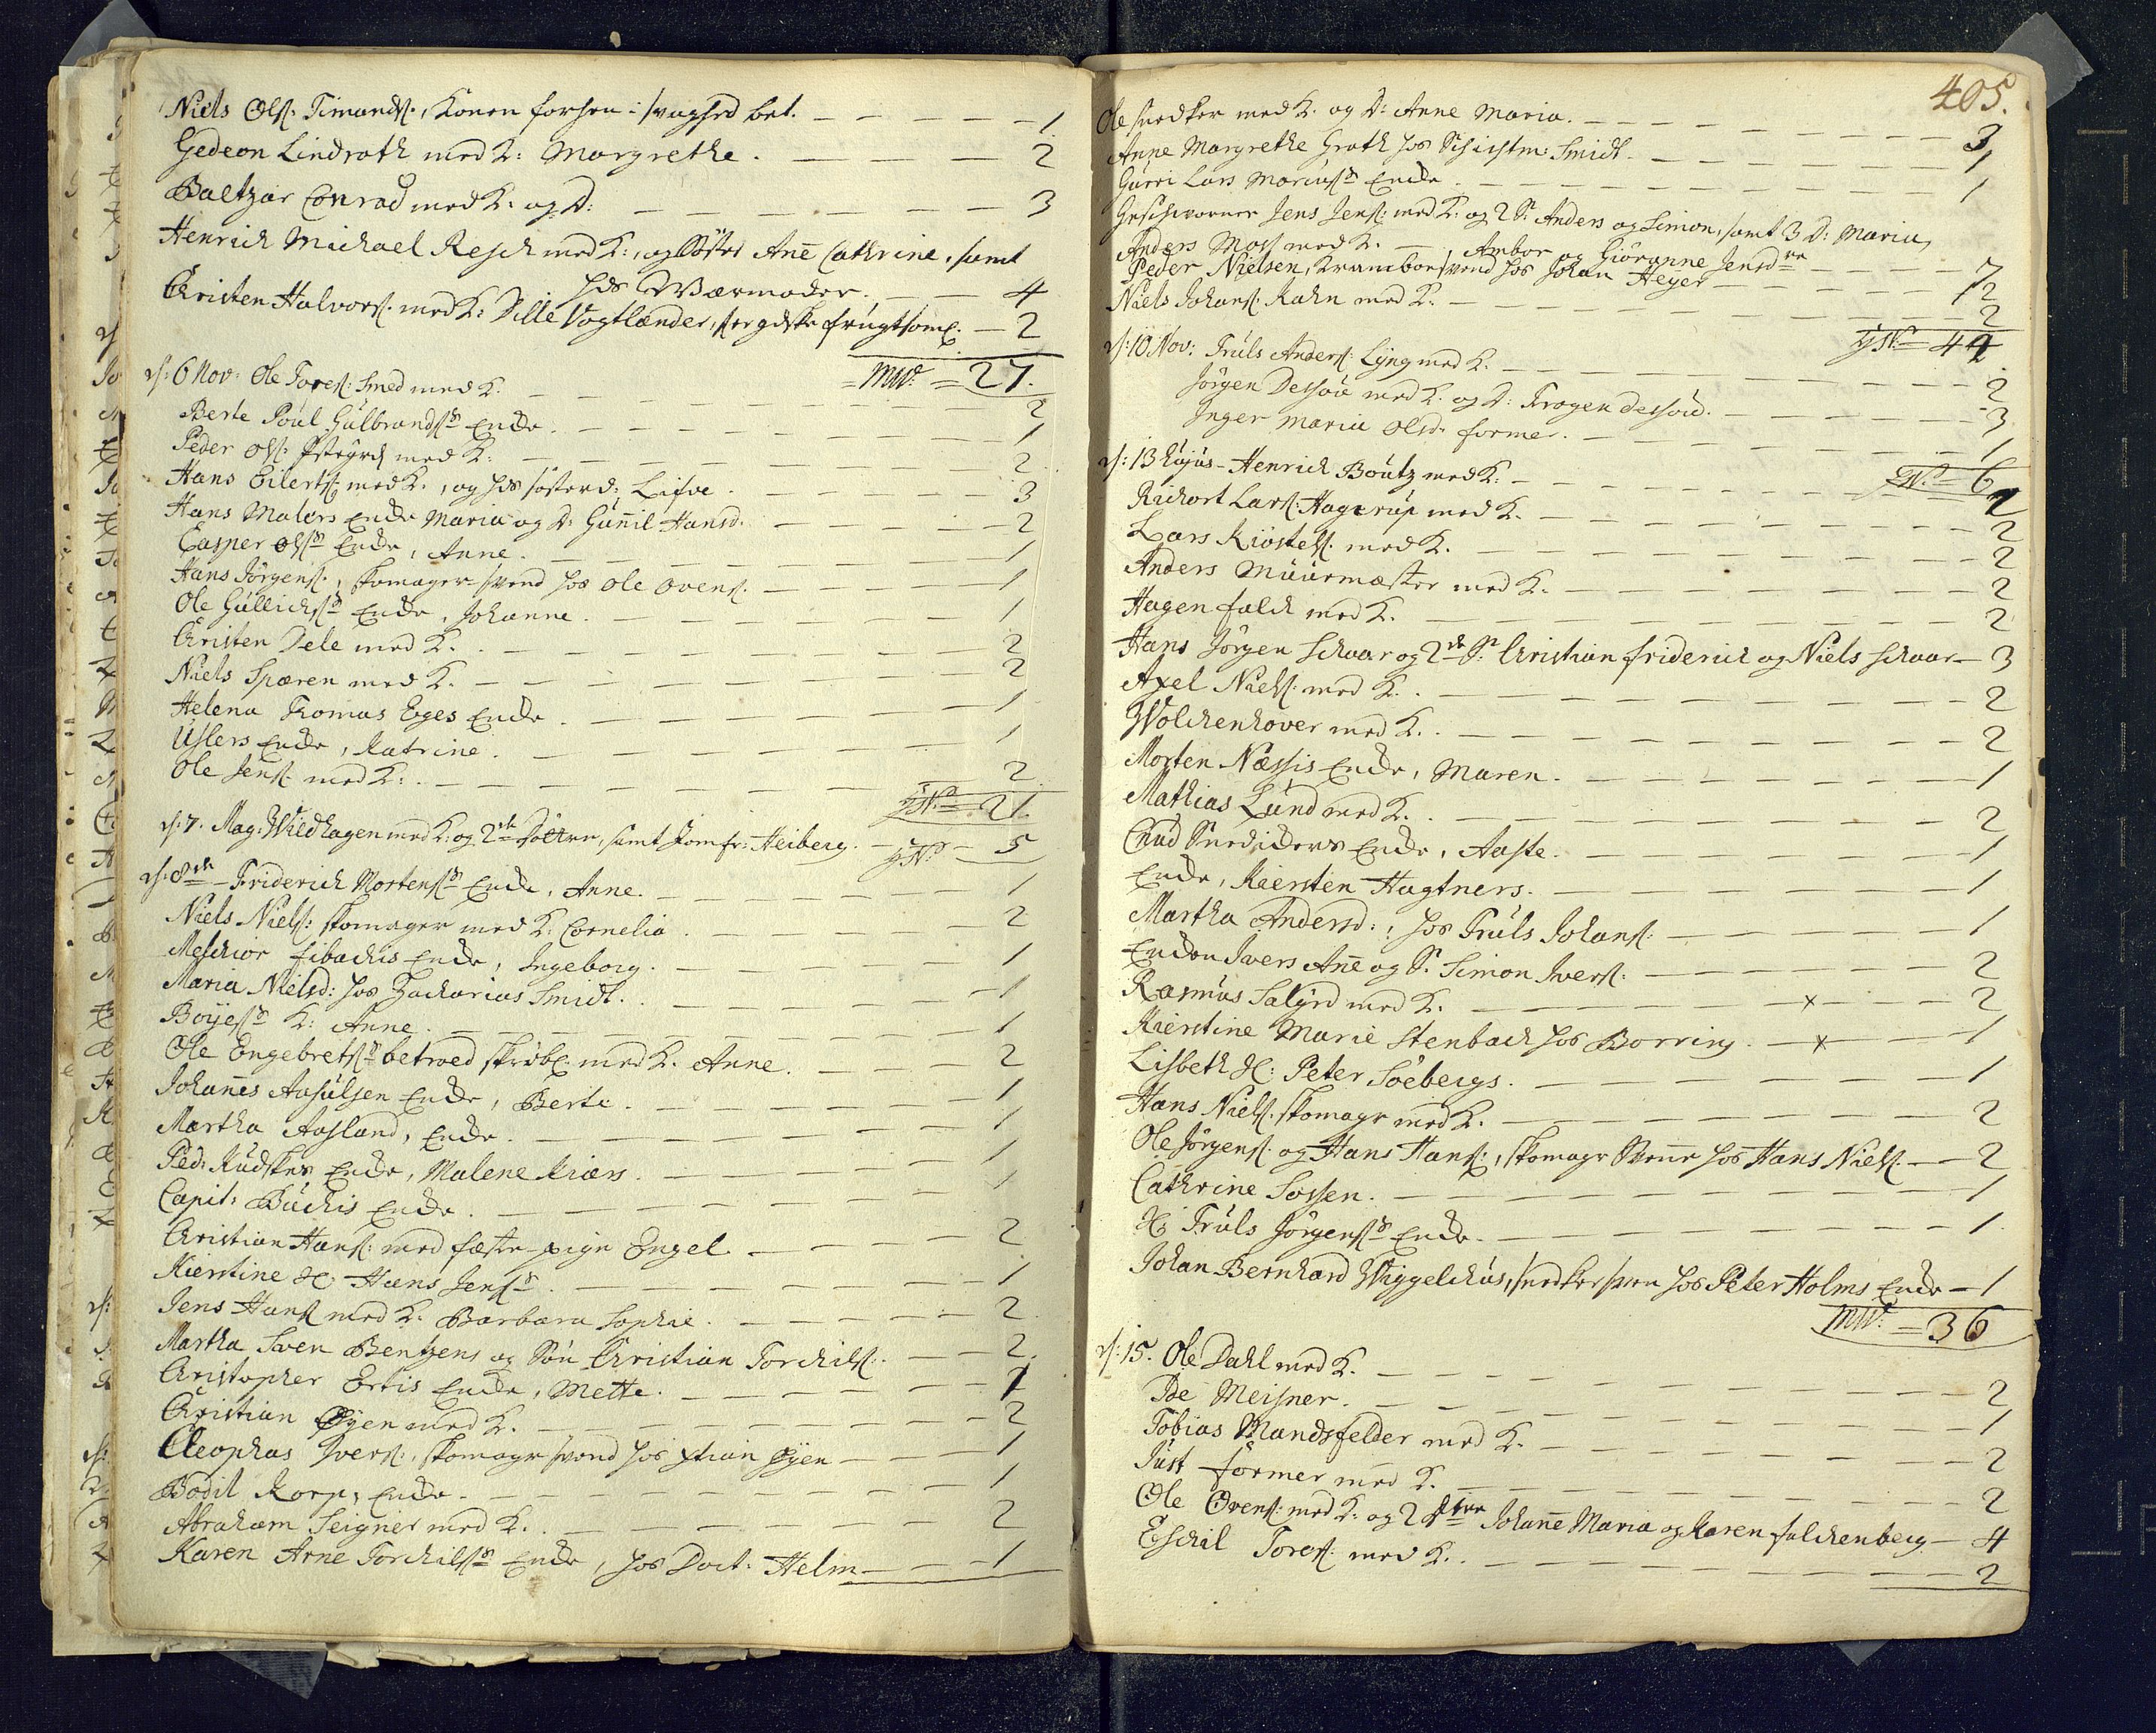 Niels Ols: Timands:, Konen forhen i svaghed bet. — — — — — 1
Gedeon Lindroth med D: Margrethe. — — — — 2
Baltzar Conrad med K: og D: — — — — — 3
Henrich Michael Resch med K:, og Søster Anne Cathrine, samt
hds Værmoder. — — 4
Christen Halvors: med K: Dille Vogtlænder, frugtsom. — 2
Mw: = 27.
d: 6 Nov: Ole Tores: Smed med K. — — — — 2
Berte Poul Gulbrands: Enche. — — — — 1
Peder Ols: med K: — — — — 2
Hans Eilerts: med K., og hds søsterd: Lisve. — — — 3
Hans Malers Enche Maria og D: Gunnil Hansd: — — — 2
Casper Ols: Enche, Anne. — — — — 1
Hans Jørgens:, skomager svend hos Ole Ovens: — — — 1
Ole Gullichs: Enche, Johanne. — — — — 1
Christen Dele med K. — — — — 2
Niels Spæren med K. — — — — 2
Helena Thomas Eges Enche. — — — — 1
Uslers Enche, Katrine. — — — — 1
Ole Jens: med K: — — — — 2
21.
d: 7. Mag: Wildhagen med K: og 2de Døttre, samt Jomfr: Heiberg. — 5
d: 8de Friderich Mortens: Enche, Anne. — — — — 1
Niels Niels: skomager med K: Cornelia. — — — 2
Melchior Fibachis Enche, Ingeborg. — — — — 1
Maria Nielsd: hos Zacharias Smidt. — — — — 1
Boyes: K: Anne. — — — — 1
Ole Engebrets: betroed skrib: med K. Anne. — — — 2
Johannes Aasulsen Enche, Berte. — — — — 1
Martha Aasland, Enche. — — — — 1
Ped: Kudskes Enche, Malene Kiærs. — — — — 1
Capit: Büchis Enche. — — — — 1
Christian Hans: med fæste-pige Engel. — — — 2
Kierstine H: Hans Jens: — — — — 1
Jens Hans: med K. Barbara Sophie. — — — — 2
Martha Sven Bentzens og Søn Christian Torchils: — — 2.
Christopher Ertis Enche, Mette. — — — — 1
Christian Øyen med K. — — — — 2
Cleophas Ivers:, skomager svend hos Xtian Øyen — — — 1
Bodil Korp, Enche. — — — — 1
Abraham Seigner med K. — — — — 2
Karen Arne Torchils: Enche, hos Doct: Helm — — 1
405.
Ole snedker med K. og D: Anne Maria. — — — — 3
Anne Margrethe Groth hos Schichtm: Smidt. — — — — 1
Gurri Lars Marius: Enche. — — — — 1
Geschworner Jens Jens: med K: og 2 S: Anders og Simon, samt 3 D: Maria,
Ambor og Giøranne Jensd: — — — 7
Anders Moss med K. — — — 2
Peder Nielsen, Kramboesvend hos Johan Heyer — — — 1
Niels Johans: Rahn med K. — — — — 2
44
d: 10 Nov: Truls Anders: Lyng med K. — — — — 2
Jørgen Dessau med K. og D: Frogen Dessau. — — — 3
Inger Maria Olsd: former. — — — 1
6
d: 13 hujus - Henrich Boutz med K: — — — — 2
Richort Lars: Hagerup med K. — — — — 2
Lars Kiøstels: med K. — — — — 2
Anders Muurmæster med K. — — — — 2
Hagen falch med K. — — — — 2
Hans Jørgen Schaar og 2de S: Christian friderich og Niels Schaar — 3
Axel Niels: med K. — — — — 2
Wolchenhover med K. — — — — 2
Morten Næssis Enche, Maren. — — — — 1
Mathias Lund med K. — — — — 2
Knud Enche, Aaste. — — — — 1
Enche, Kiersten Hagtners. — — — — 1
Martha Andersd:, hos Truls Johans: — — — — 1
Enchen Ivers Anne og S. Simon Ivers: — — — — 2
Rasmus Salyrd med K. — — — x — 2
Kierstine Marie Stenbach hos Borring. — x — 1
Lisbeth H: Peter Søebergs. — — — — 1
Hans Niels: skomager med K. — — — — 2
Ole Jørgens: og Hans Hans:, skomager Svenne hos Hans Niels: — 2
Cathrine Sossen. — — — — 1
H: Truls Jørgens: Enche. — — — — 1.
Johan Bernhard Wiggelchus, snedkersven hos Peter Holms Enche — 1
Mw: = 36
d: 15. Ole Dahl med K. — — — — 2
De Meisner. — — — — 1
Tobias Mandsfelder med K. — — — — 2
Just former med K. — — — — 2
Ole Ovens: med K: og 2 Johanne Maria og Karen falchenberg — 4
Eschil Tores: med K. — — — — 2